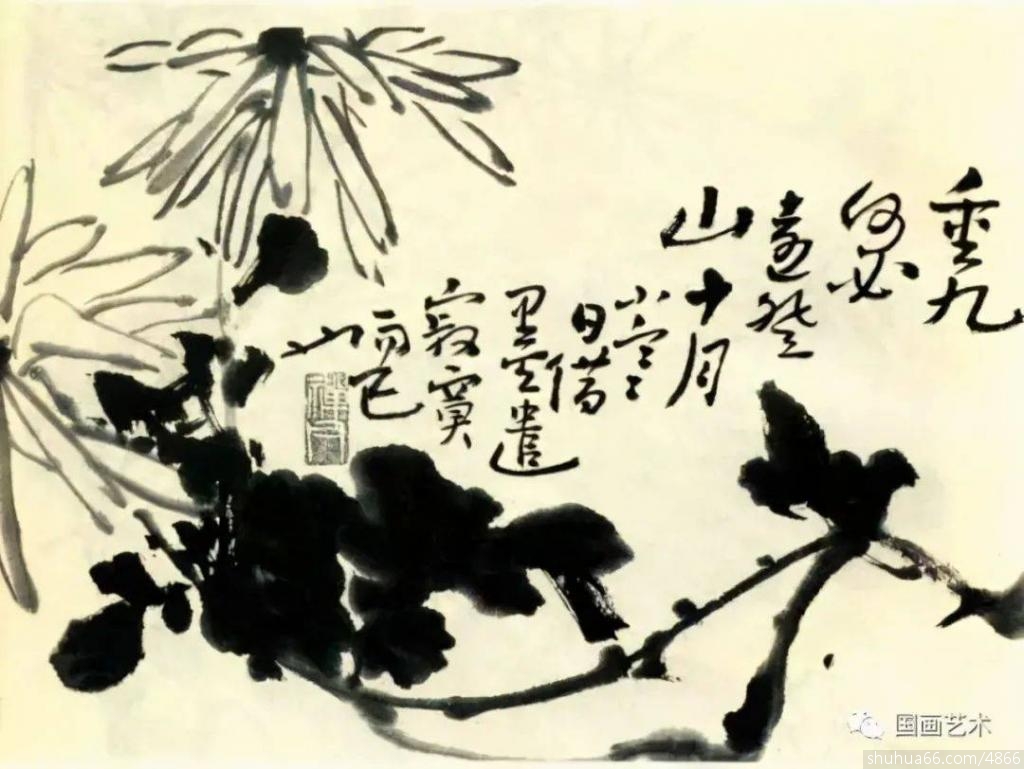 重九
何必
遠登
山十月
小
日借
墨遣
寂寞
而已
国画艺术
shuhua66.com/4866